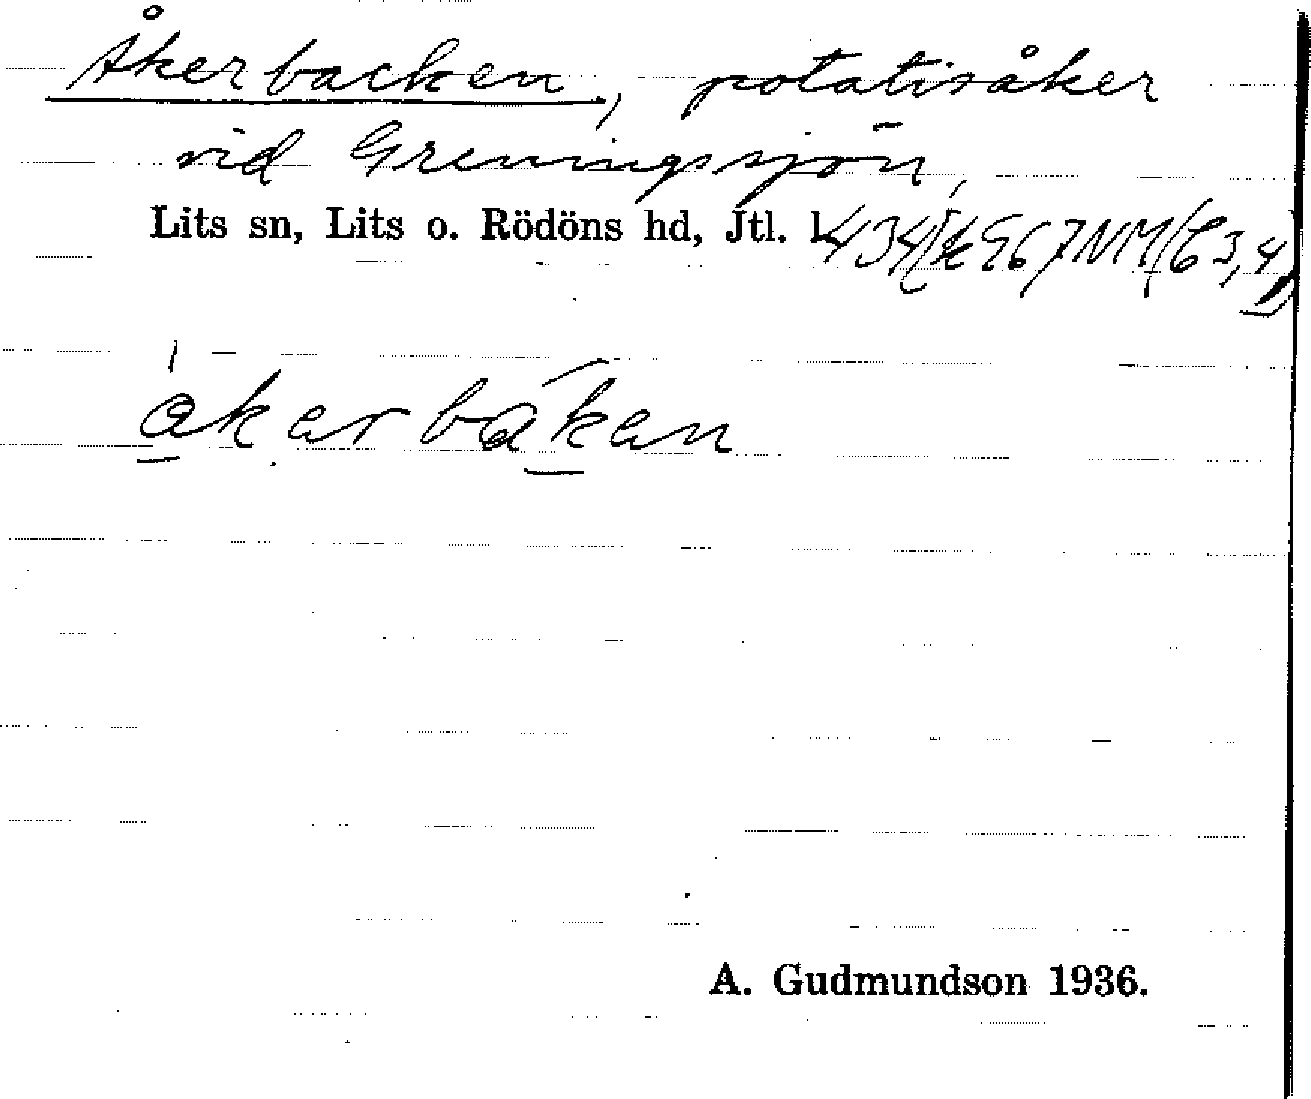 Åkerbacken, potatisåker
vid Greningssjön,
Lits sn, Lits o. Rödöns hd, Jtl. l.
åkarbakan
A. Gudmundson 1936.